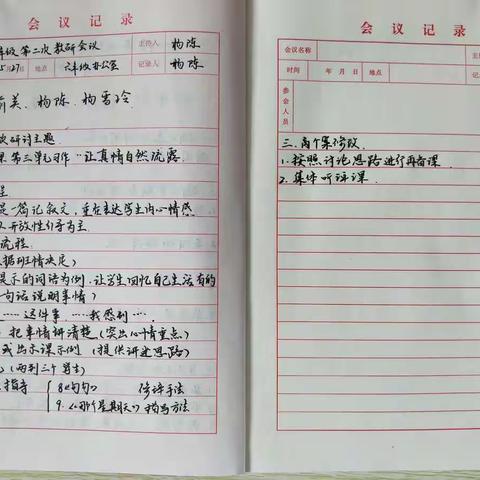 会议记录
年级第二次教研会议 主持人 杨陈
5月27日 地点 六年级办公室 记录人 杨陈
美、杨陈、杨雪玲
次研讨主题
第三单元习作“让真情自然流露
是一篇记叙文，重在表达学生内心情感
以开放性引导为主
流程
据班情决定）
提示的词语为例，让学生回忆自己生活有的
一句话说明事情）
…… 这件事 …… 我感到 ……
把事情讲清楚（突出心情重点）
或出示课示例（提供讲述思路）
（两到三个男生）
指导 8《匆匆》 修辞手法
9.《那个星期天》 描写方法
会议记录
会议名称 主持人
时间 年 月 日 地点 记录人
参会人员
三、高个集修改
1. 按照讨论思路进行再备课
2. 集体听评课